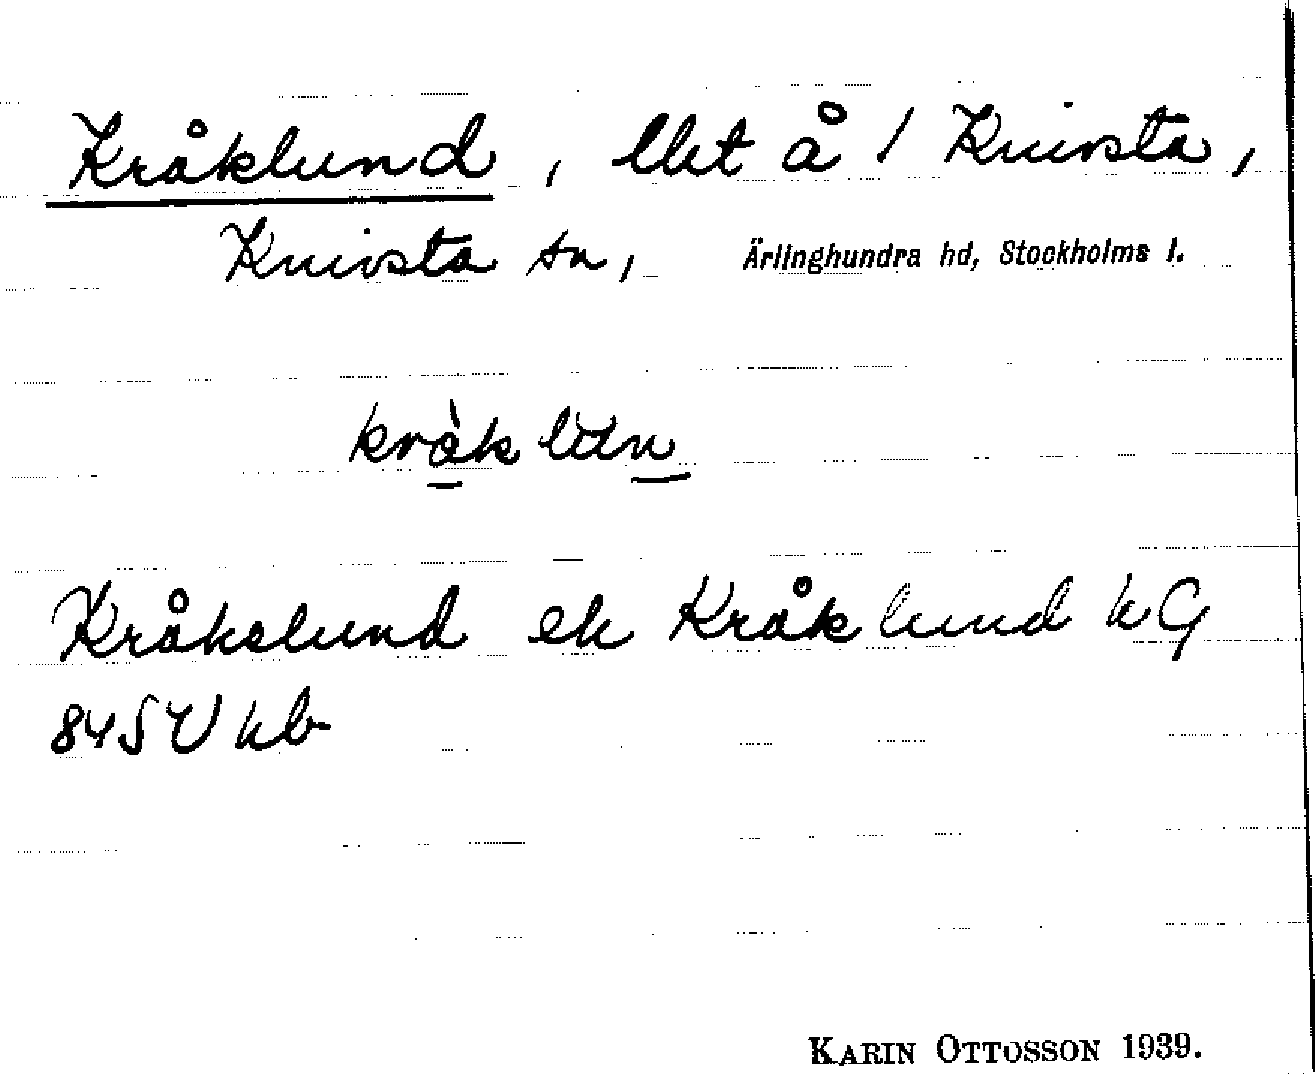 Kråklund, llet å / Knivsta,
Knivsta sn, Ärlinghundra hd, Stockholms l.
kràk lun
Kråkelund ek Kråklund kG
84SV kb
KARIN OTTOSSON 1939.